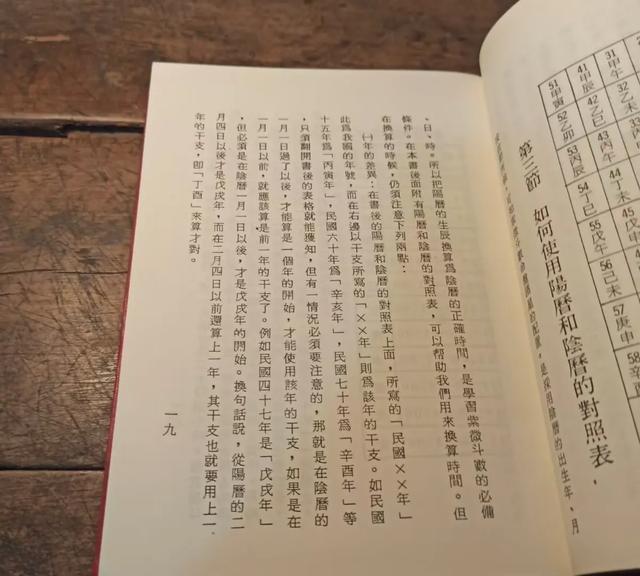 51甲寅
52乙卯
53丙辰
54丁巳
55戊午
56己未
57庚申
58辛
41甲辰
42乙巳
43丙午
44丁未
31甲午
32乙未
第三節　如何使用陽曆和陰曆的對照表，
是採用陰曆的出生年、月
、日、時。所以把陽曆的生辰換算爲陰曆的正確時間，是學習紫微斗數的必備
條件。在本書後面附有陽曆和陰曆的對照表，可以幫助我們用來換算時間。但
在換算的時候，仍須注意下列兩點：
㈠年的差異：在書後的陽曆和陰曆的對照表上面，所寫的「民國××年」
此爲我國的年號，而在右邊以干支所寫的「××年」則爲該年的干支。如民國
十五年爲「丙寅年」，民國六十年爲「辛亥年」，民國七十年爲「辛酉年」等
，只須翻開書後的表格就能獲知，但有一情況必須要注意的，那就是在陰曆的
一月一日過了以後，才能算是一個年的開始，才能使用該年的干支，如果是在
一月一日以前，就應該算是前一年的干支了。例如民國四十七年是「戊戌年」
，但必須是在陰曆一月一日以後，才是戊戌年的開始。換句話說，從陽曆的二
月四日以後才是戊戌年，而在二月四日以前還算上一年，其干支也就要用上一
年的干支，卽「丁酉」來算才對。
一九